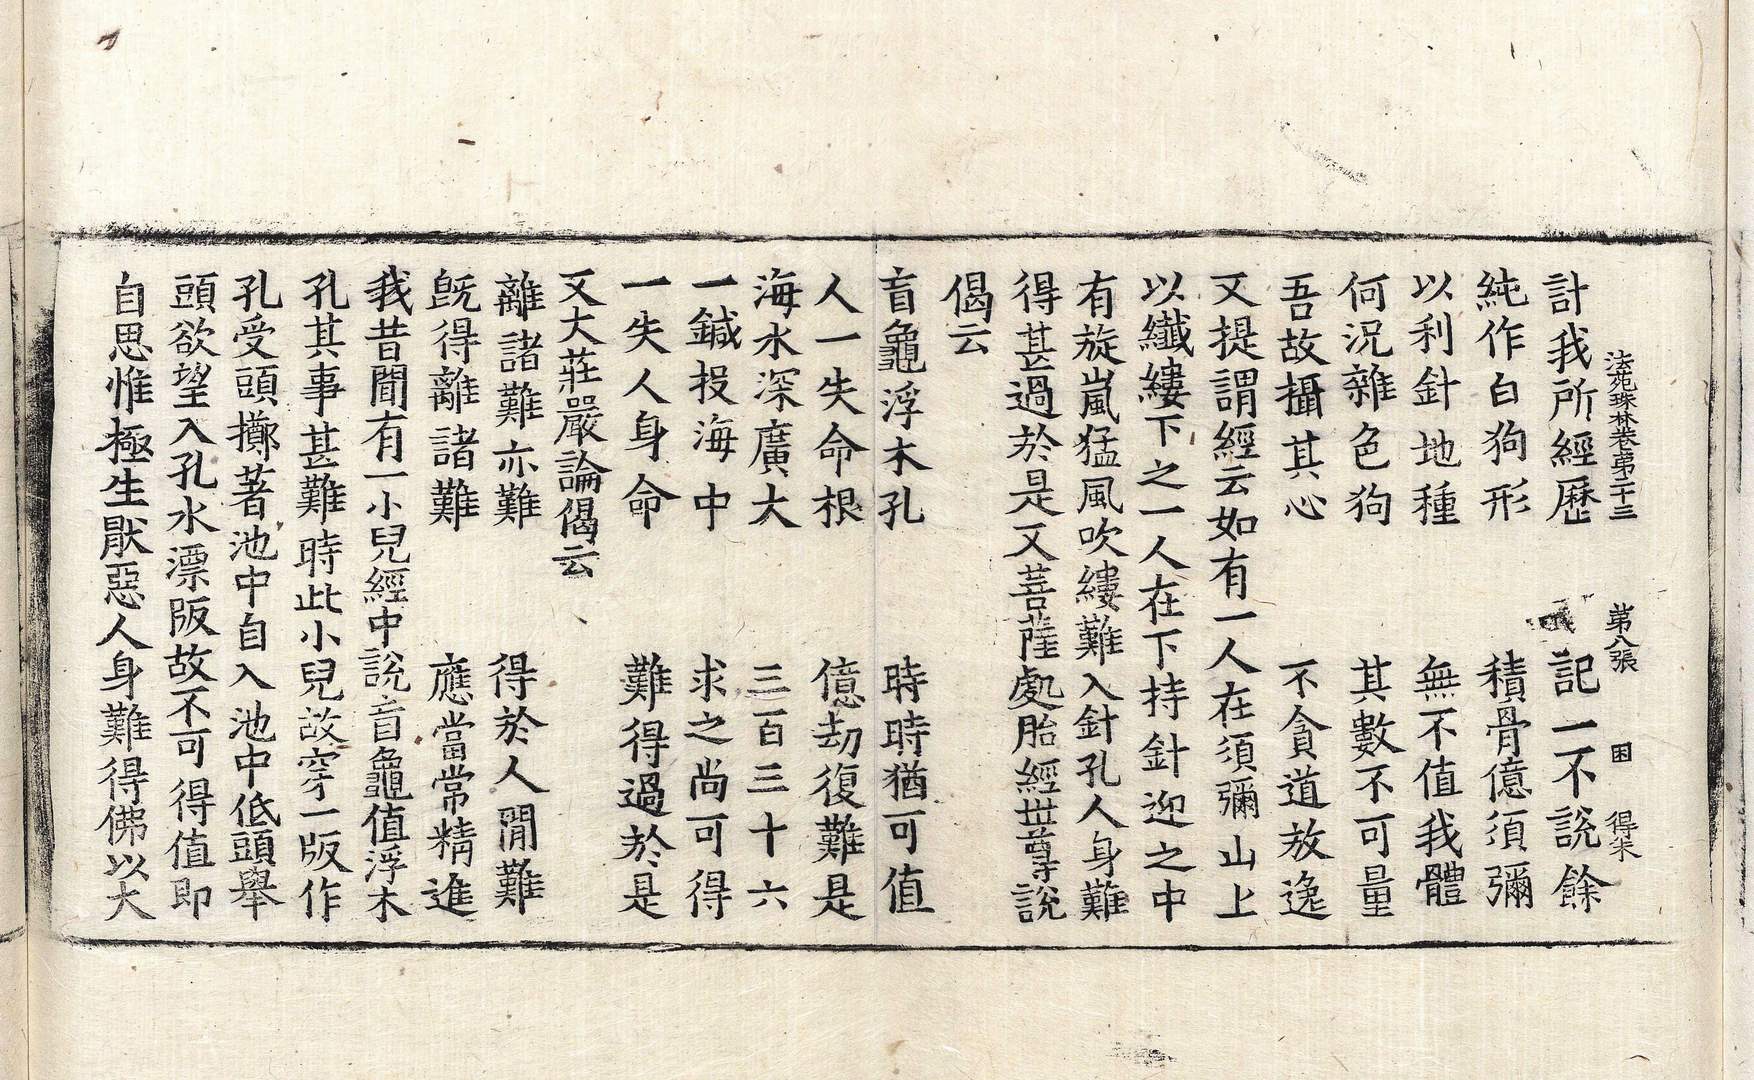 法苑珠林卷第二十三 第八張 困 得朱
計我所經歷 記一不說餘
純作白狗形 積骨億須彌
以利針地種 無不值我體
何況雜色狗 其數不可量
吾故攝其心 不貪道放逸
又提謂經云如有一人在須彌山上
以纖縷下之一人在下持針迎之中
有旋嵐猛風吹縷難入針孔人身難
得甚過於是又菩薩處胎經世尊說
偈云
盲龜浮木孔 時時猶可值
人一失命根 億劫復難是
海水深廣大 三百三十六
一鍼投海中 求之尚可得
一失人身命 難得過於是
又大莊嚴論偈云
離諸難亦難 得於人閒難
旣得離諸難 應當常精進
我昔聞有一小兒經中說盲龜值浮木
孔其事甚難時此小兒故穿一版作
孔受頭擲著池中自入池中低頭舉
頭欲望入孔水漂版故不可得值即
自思惟極生厭惡人身難得佛以大